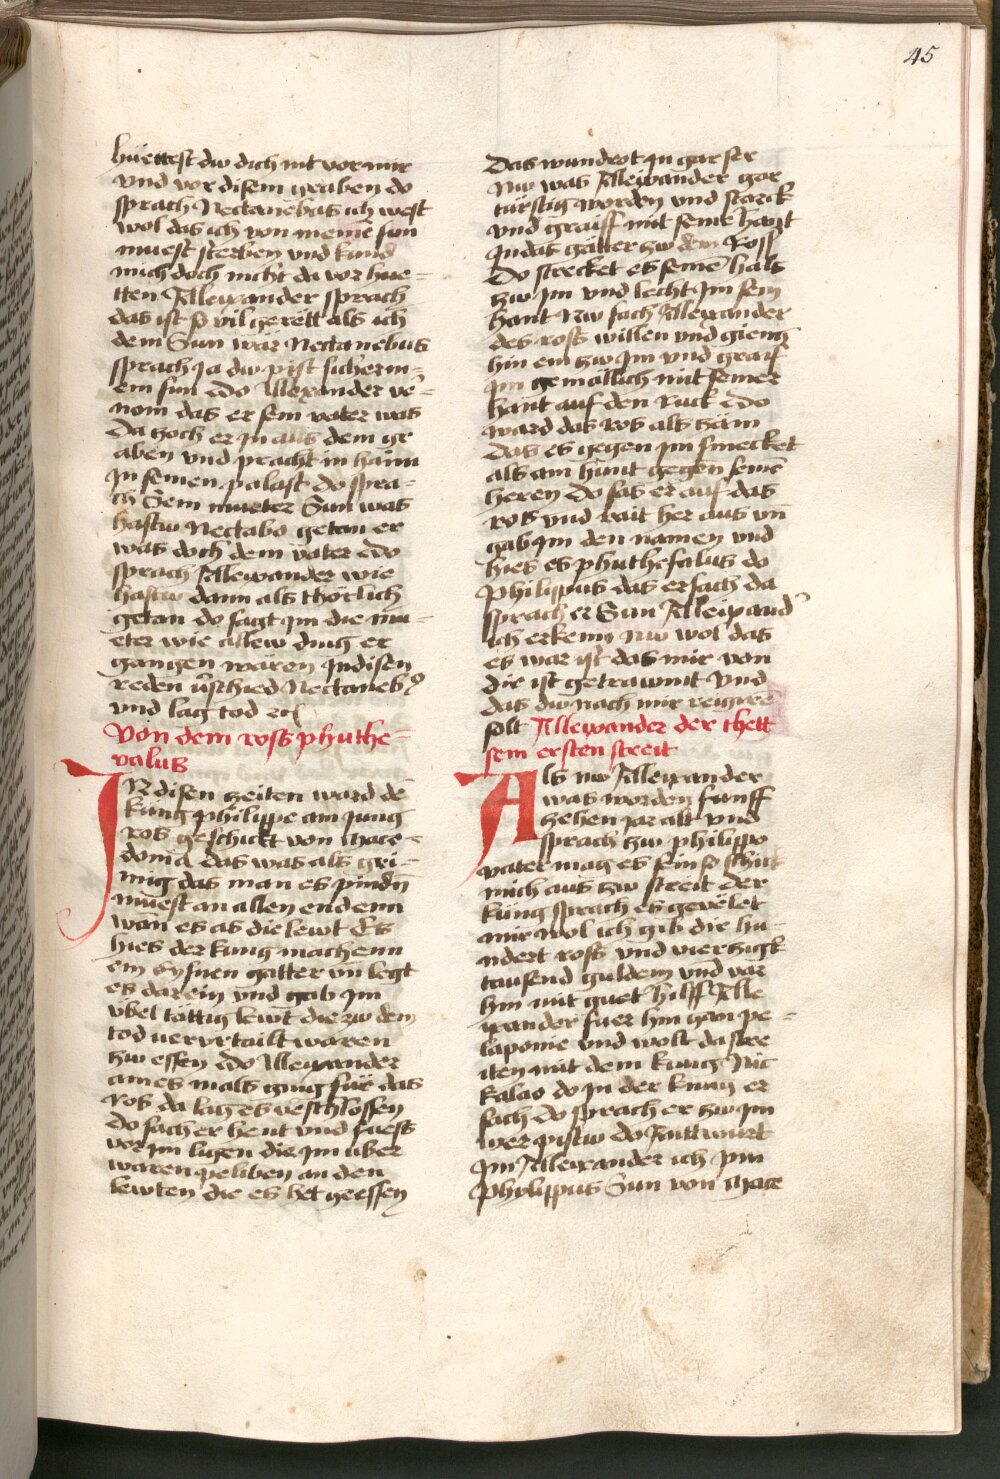 45
hüettest dw dich nit vor mir
vnd vor disem graben do
sprach Nectanebus ich west
wol das ich von meinē sun
muest sterben vnd kund
mich doch nicht da vor hue=
tten Allexander sprach
das ist so vil gerett als ich
dem Sun wär Nectanebus
sprach Ja dw pist sicher m=
ein sun Do Allexander ver=
nom das er sein vater was
Da zoch er in aus dem gr
aben vnd pracht in haim
In seinen palast do spra=
ch Sein mueter Sun was
hastw Nectabo getan er
was doch dein vater Do
sprach Allexander wie
hastw dann als thörlich
getan do sagt im die mu=
eter wie allew ding er
gangen wären In disen
reden verschied Nectaneb9
vnd lag tod
Von dem ross phuthe=
valus
IN disen zeiten ward dē
küng philippe ain jung
ros geschickt von Mace=
donia das was als gri=
mig das man es pindn̄
muest an allen enden
wan es as die lewt Es
hies der kung machenn
ein eysnen gatter vn̄ legt
es darein vnd gab im
übel tättig lewt die zw dem
tod verurtailt waren
zw essen Do Allexander
aines mals ging für das
ros da lag es verschlossen
Do sach er hent vnd fuess
vor im ligen die im über
waren peliben an den
lewten die es het geessen
Das wundrot in gar ser
Nw was Allexander gar
türstig worden vnd starck
vnd graiff mit seinē hant
In das gatter zw dem Ross
Do strecket es seinē hals
zw im vnd lecht im sein
hant Nw sach Allexander
des ross willen vnd gieng
hin ein zw im vnd graif
im gemällich mit seiner
hant auf den Ruck Do
ward das ros als zäm
Das es gegen im smecket
als ain hunt gegen seinē
heren Do sas er auf das
ros vnd rait her aus vn̄
gab im den namen vnd
hies es phuthefalus do
Philippus das ersach da
sprach er Sun Allexand'
ich erkenn nw wol das
es war ist das mir von
dir ist getrawmt Vnd
das dw nach mir reigirē
solt Allexander der thett
sein ersten streit
Als nw Allexander
was worden funff
zehen jar alt vnd
sprach zw philippo
vater mag es sein so schick
mich aus zw streit Der
küng sprach es gevelet
mir wol ich gib dir hu=
ndert ross vnd vierzigk
taussend guldein vnd var
hin mit guet hilff Alle
xander fuer hin gan pe=
laponie vnd wolt da stre
iten mit dem kung Nic
kalao do in der kung er
sach do sprach er zw im
wer pistw do Antwurt
im Allexander ich pin
Philippus Sun von Mace